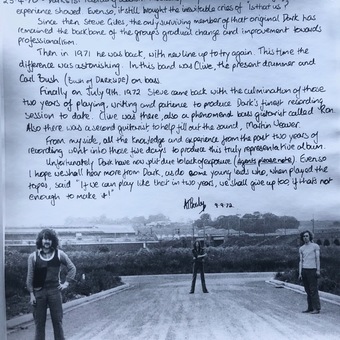 experience showed Evenso, it still brought the inevitable cries of "Is that us"?
Since then Steve Giles, the only surviving member of that original Dark has
remained the backbone of the group's gradual change and improvement towards
professionalism.
Then in 1971 he was back, with new line up to try again. This time the
difference was astonishing. In this band was Clive, the present drummer and
Carl Bush (Bush of DARKSIDE) on bass.
Finally on July 9th. 1972 Steve came back with the culmination of those
two years of playing, writing and patience to produce Dark's finest recording
session to date. Clive was there, also a phenomenal bass guitarist called 'Ron.
Also there was a second guitarist to help fill out the sound, Martin Weaver.
From my side, all the knowledge and experience from the past two years of
recording went into those five days to produce this truly representative album.
Unfortunately Dark have now split due to lack of exposure (Agents please note). Evenso
I hope we shall hear more from Dark, as do some young lads who, when played the
tapes, said "If we can play like that in two years, we shall give up too, if thats not
enough to make it!"
9.9.72